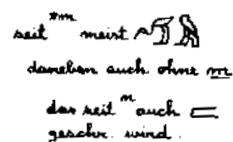 seit meist
daneben auch ohne m
das seit n auch
geschr. wird.